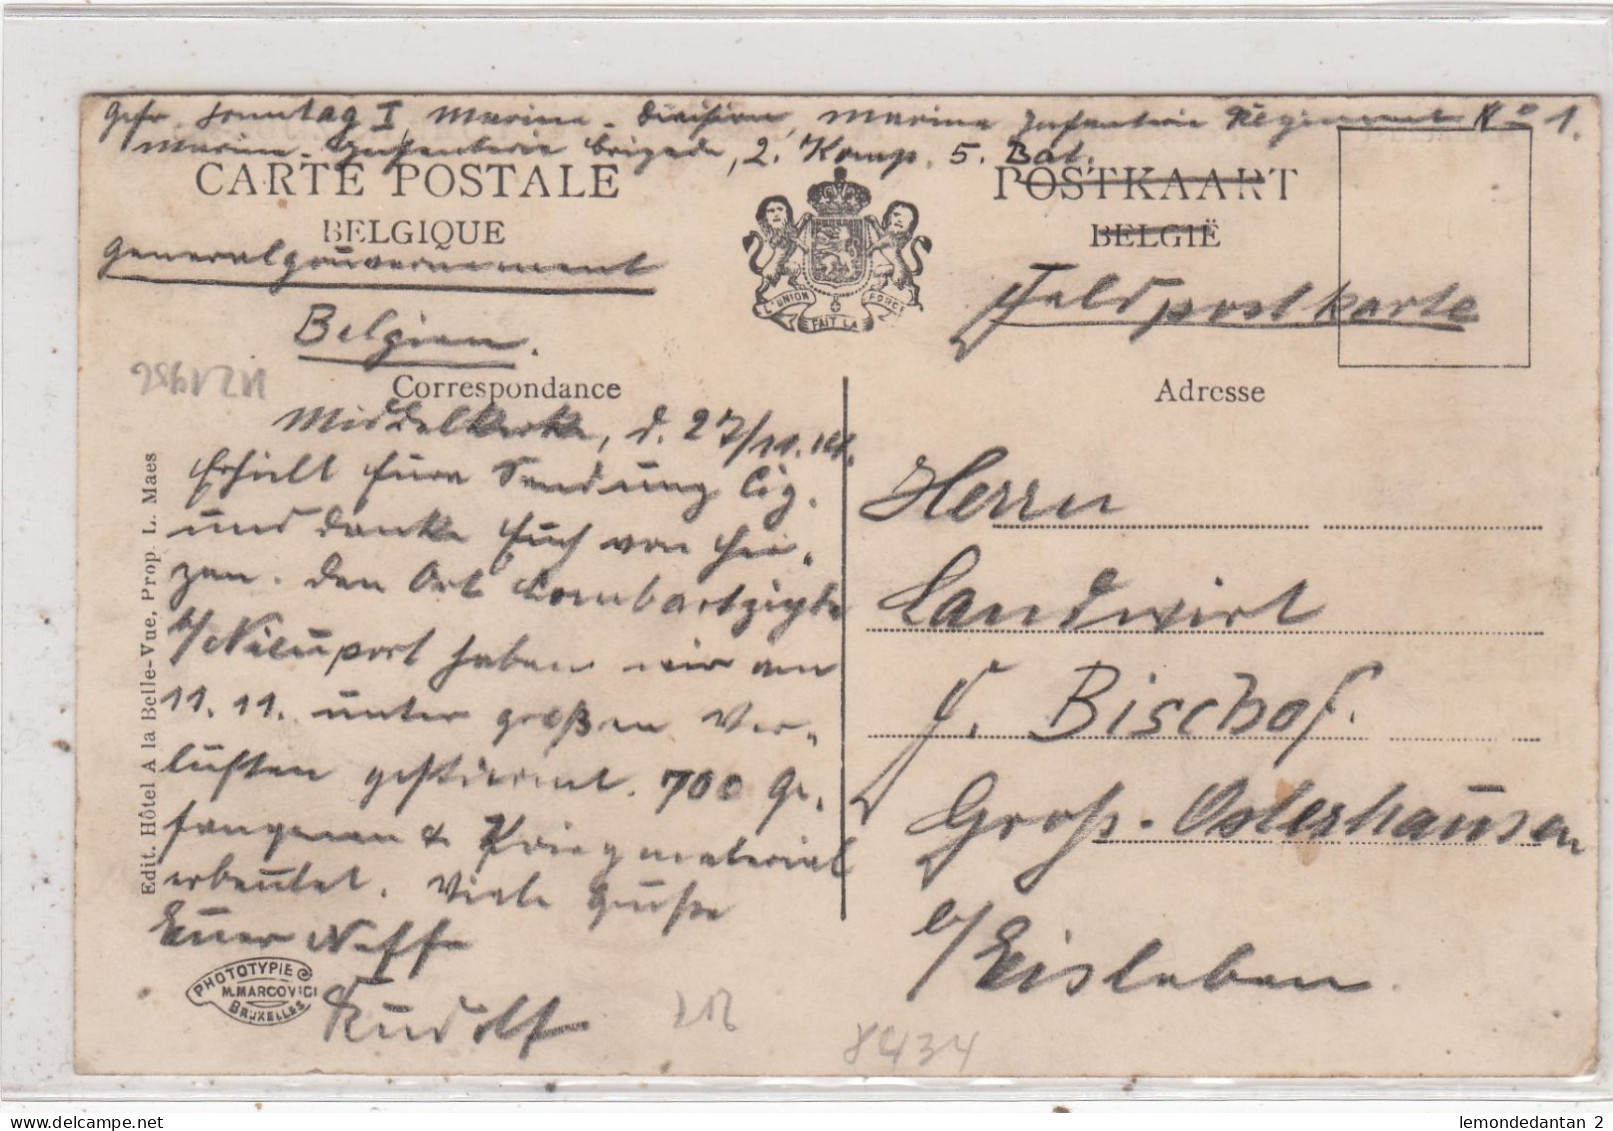 Gefr. Sonntag I Marine-Division, Marine Infanterie Regiment No 1.
Marine-Infanterie Brigade, 2. Komp. 5. Bat.
CARTE POSTALE
BELGIQUE
Generalgouvernement
Belgien.
L'UNION FAIT LA FORCE
POSTKAART
BELGIË
Feldpostkarte
Correspondance
Adresse
Middelkerke, d. 27/11. 14.
Erhielt Eure Sendung Cig.
und danke Euch von Her-
zen. Den Ort Lombartzyde
b/Nieuport haben wir am
11. 11. unter großen Ver-
lusten gestürmt. 700 Ge-
fangenen & Kriegmaterial
erbeutet. Viele Grüße
Euer Neffe
Rudolf
Herrn
Landwirt
F. Bischof.
Groß-Osterhausen
b/Eisleben.
Edit. Hôtel A la Belle-Vue, Prop. L. Maes
PHOTOTYPIE
M. MARCOVICI
BRUXELLES
8434
lemondedantan 2